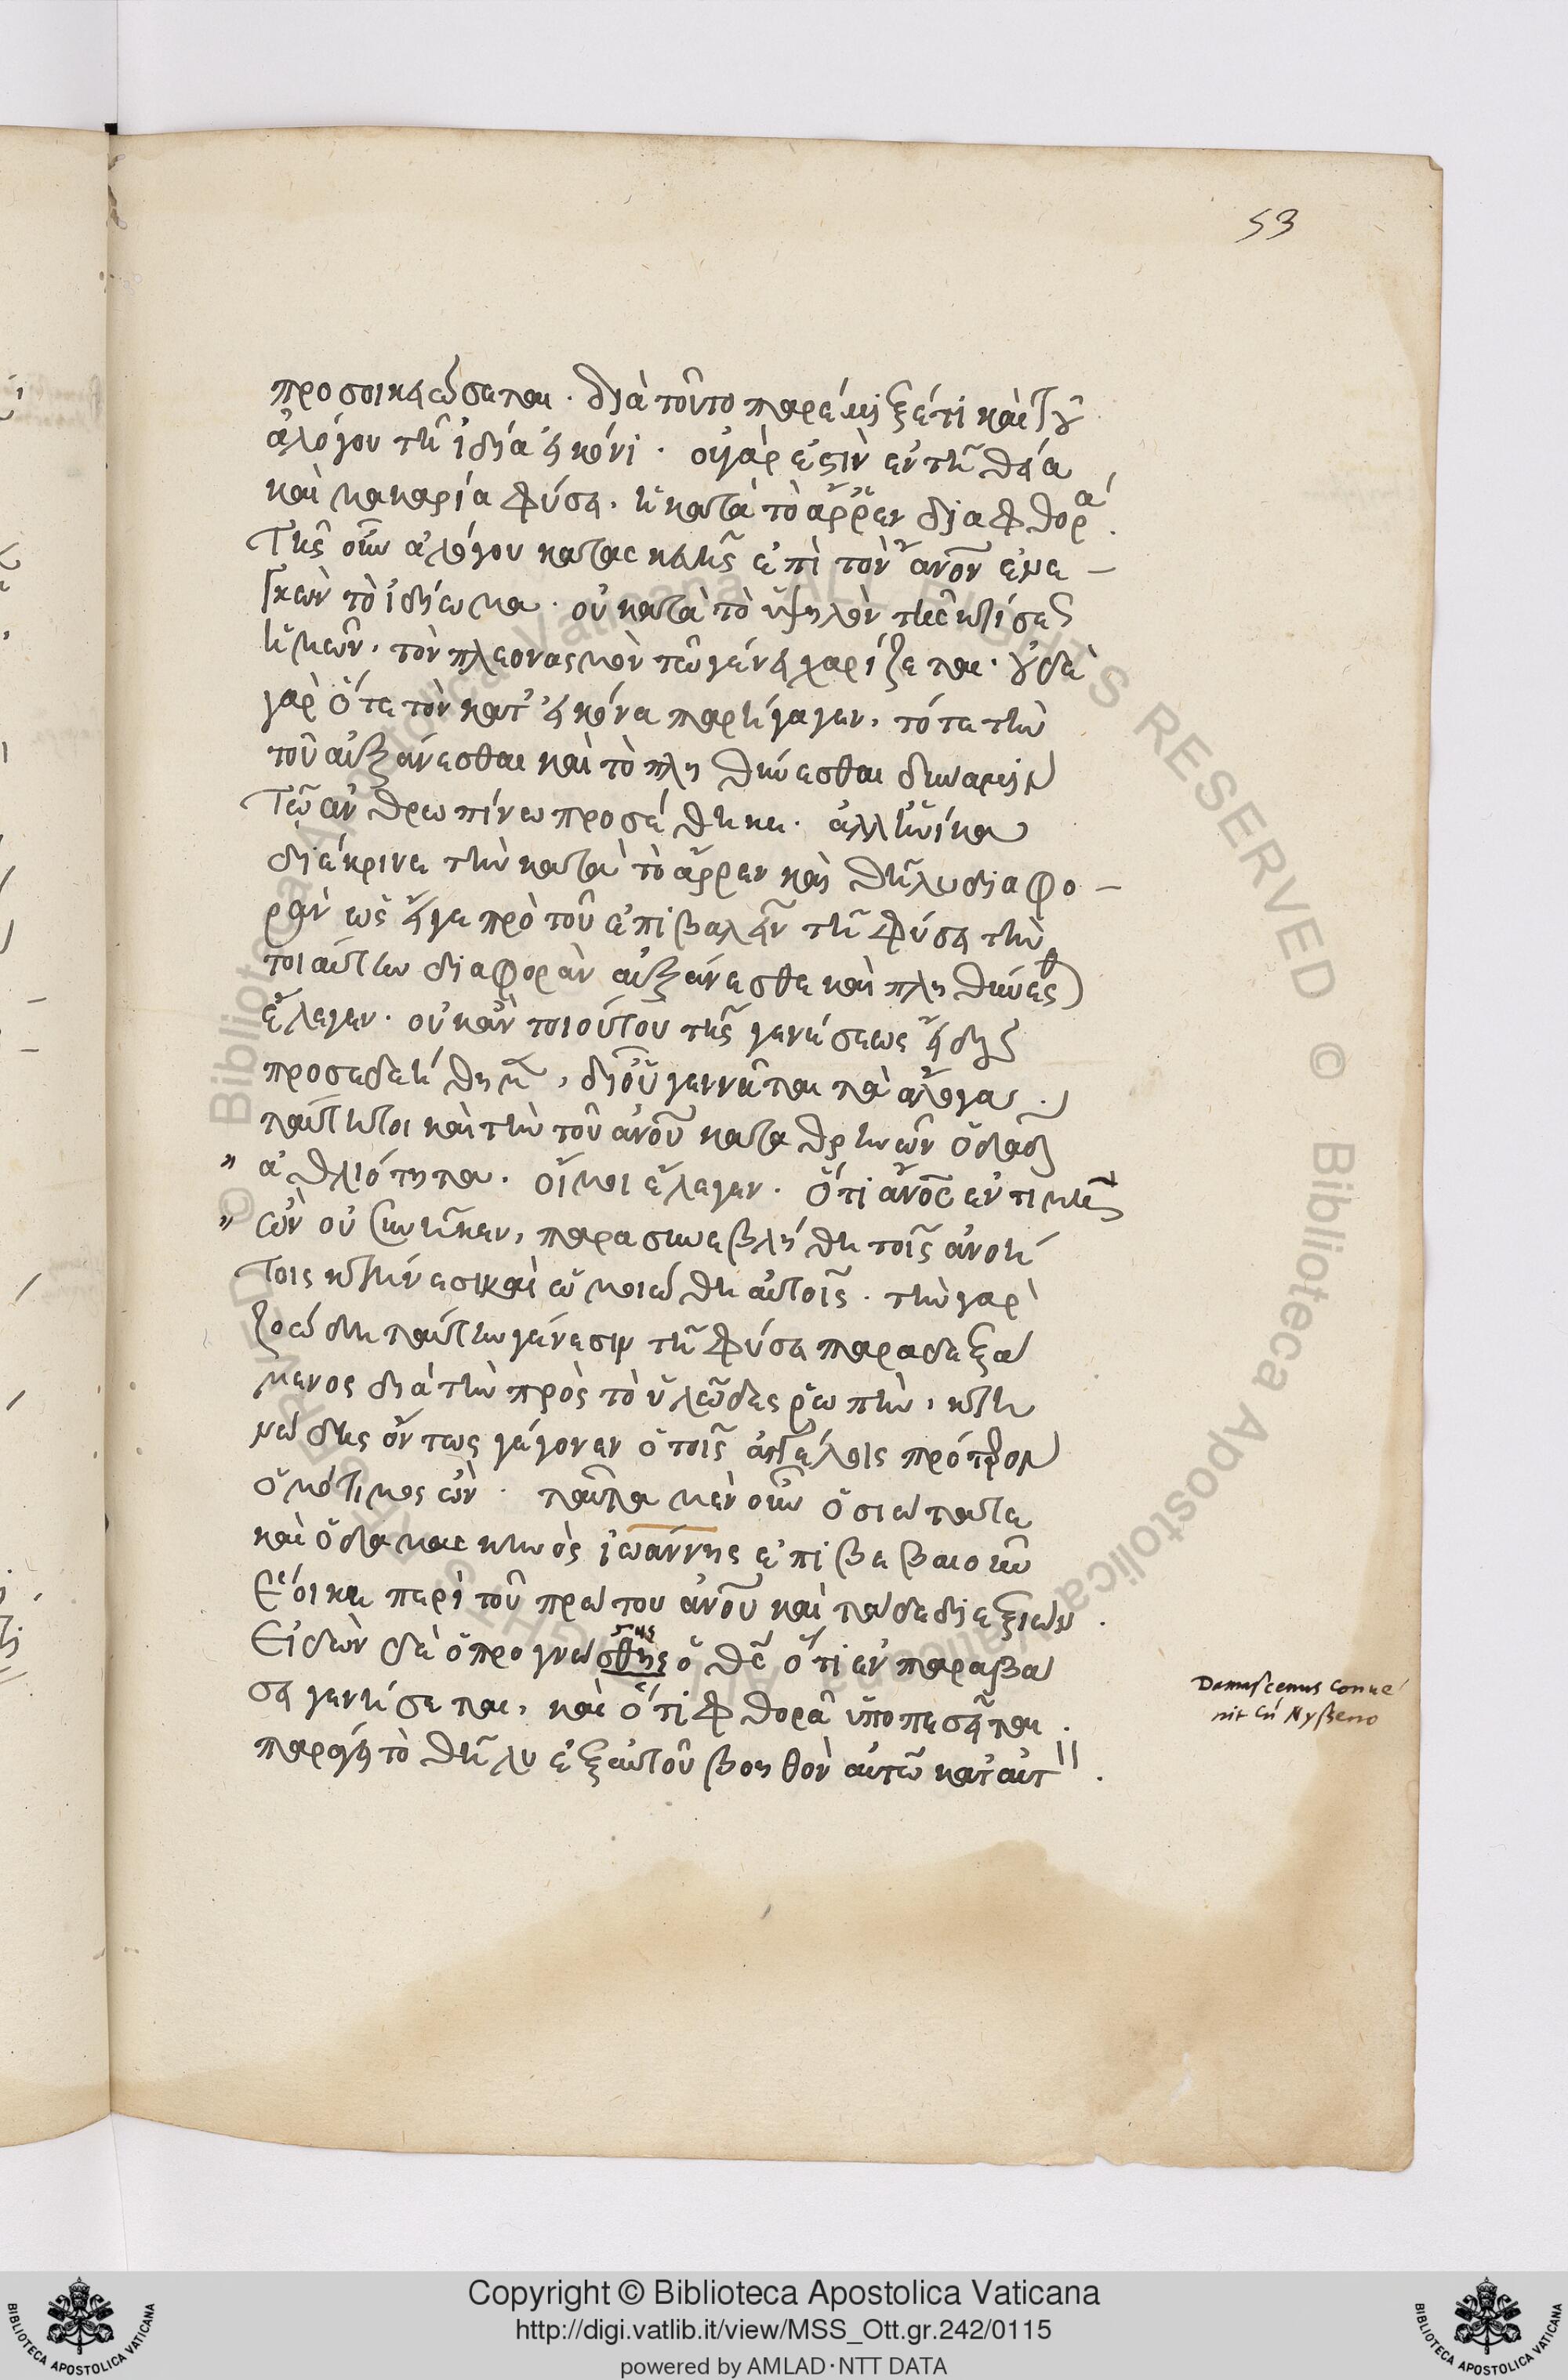 53
προσοικειώσεται. διὰ τοῦτο παρέμιξέ τι καὶ τοῦ
ἀλόγου τῆ ἰδία εἰκόνι. οὐ γάρ ἐστιν ἐν τῆ θεία
καὶ μακαρία φύσει. ἡ κατὰ τὸ ἄρρεν διαφθορά.
Τῆς οὖν ἀλόγου κατασκευῆς ἐπὶ τὸν ἄνον ἐμε
τὸ ἰδίωμα. οὐ κατὰ τὸ ὑψηλὸν τῆς κτίσεως
ἡμῶν. τὸν πλεονασμὸν τῶ γένει χαρίζεται. οὐδὲ
γὰρ ὅτε τὸν κατ' εἰκόνα παρήγαγεν. τότε τὴν
τοῦ αὐξάνεσθαι καὶ τὸ πληθύνεσθαι δύναμιν
Τῶ ἀνθρωπίνω προσέθηκε. ἀλλ' ἡνίκα
διέκρινε τὴν κατὰ τὸ ἄρρεν καὶ θῆλυ διαφο
ρὰν ὡς εἴγε πρὸ τοῦ ἐπιβαλεῖν τῆ φύσει τὴν
τοιαύτην διαφορὰν αὐξάνεσθε καὶ πληθύνεσθε
ἔλεγεν. οὐκ ἂν τοιούτου τῆς γενέσεως εἴδους
προσεδεήθημεν, δι' οὗ γεννᾶται τὰ ἄλογα.
ταύτη τοι καὶ τὴν τοῦ ἀνου καταθρηνῶν ὁ δαδ
" ἀθλιότητα. οἴμοι ἔλεγεν. ὅτι ἄνος ἐν τιμῆ
" ὢν οὐ συνῆκεν, παρασυνεβλήθη τοῖς ἀνοή
τοις κτήνεσι καὶ ὡμοιώθη αὐτοῖς. τὴν γὰρ
ζοώδη ταύτην γένεσιν τῆ φύσει παραδεξά
μενος διὰ τὴν πρὸς τὸ ὑλῶδες ῥωπὴν, κτη
νώδης ὄντως γέγονεν ὁ τοῖς ἀγγέλοις πρότερον
ὁμότιμος ὤν. ταῦτα μὲν οὖν ὁσιώτατε
καὶ ὁ δαμασκηνὸς ἰωάννης ἐπιβεβαιοῦν
ἔοικε περὶ τοῦ πρώτου ἀνου καὶ τάδε διεξιών.
Εἰδὼν δὲ ὁ προγνώσθης ὁ θς ὅτι ἐν παραβά
σει γενήσεται, καὶ ὅτι φθορᾶ ὑποπεσεῖται.
παράγει τὸ θῆλυ ἐξ αὐτοῦ βοηθὸν αὐτῶ κατ' αὐτ.
στης
Damascenus conue
nit cū Nysseno
Copyright © Biblioteca Apostolica Vaticana
http://digi.vatlib.it/view/MSS_Ott.gr.242/0115
powered by AMLAD·NTT DATA
BIBLIOTECA APOSTOLICA VATICANA
BIBLIOTECA APOSTOLICA VATICANA
© Biblioteca Apostolica Vaticana ALL RIGHTS RESERVED